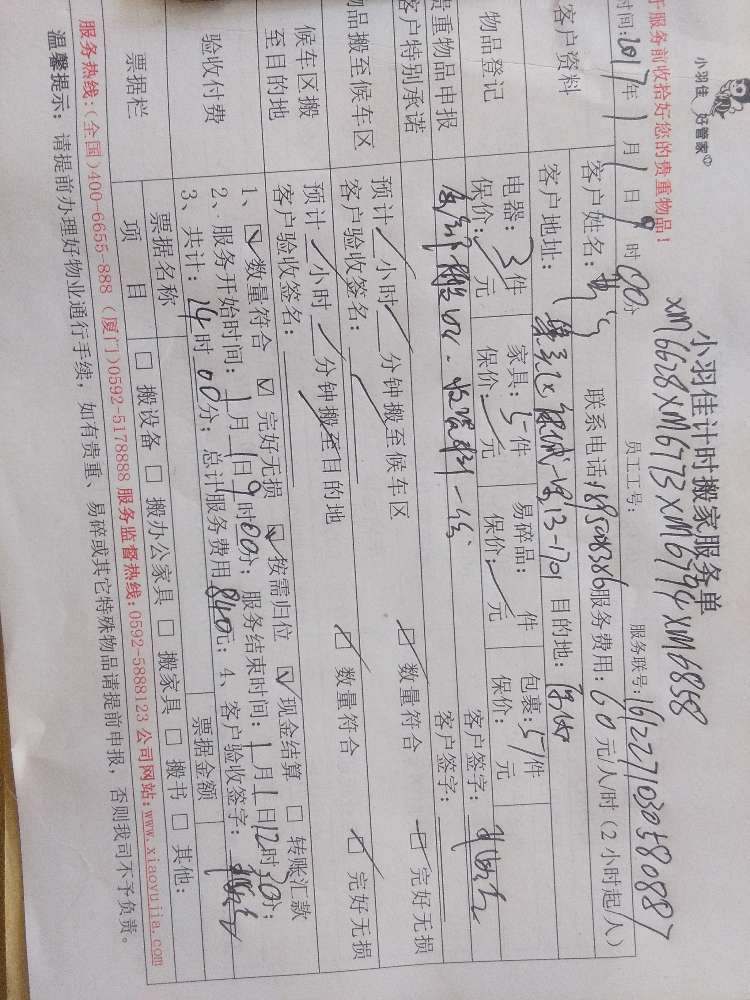 小羽佳 好管家
小羽佳计时搬家服务单
XM6628XM6773XM6794XM6858
于服务前收拾好您的贵重物品!
员工工号:
服务联号:
时间:2017年1月1日9时00分
客户资料
客户姓名:
联系电话:
服务费用:60元/人/时(2小时起/人)
客户地址:
目的地:
物品登记
电器:3件 家具:5件 易碎品: 件 包裹:51件
保价: 元 保价: 元 保价: 元 保价: 元
客户签字:
贵重物品申报
客户特别承诺
客户签字:
物品搬至候车区
预计 小时 分钟搬至候车区
客户验收签名:
数量符合 完好无损
候车区搬
至目的地
预计 小时 分钟搬至目的地
客户验收签名:
数量符合 完好无损
验收付费
1、 数量符合 完好无损 按需归位 现金结算 转账汇款
2、服务开始时间:1月1日9时00分; 服务结束时间:1月1日12时30分;
3、共计:14时00分; 总计服务费用840元; 4、客户验收签字:
票据栏
票据名称
票据金额
项 目
搬设备 搬办公家具 搬家具 搬书 其他:
服务热线:(全国)400-6655-888 (厦门)0592-5178888 服务监督热线:0592-5888123 公司网站:www.xiaoyujia.com
温馨提示: 请提前办理好物业通行手续, 如有贵重、易碎或其它特殊物品请提前申报, 否则我司不予负责。